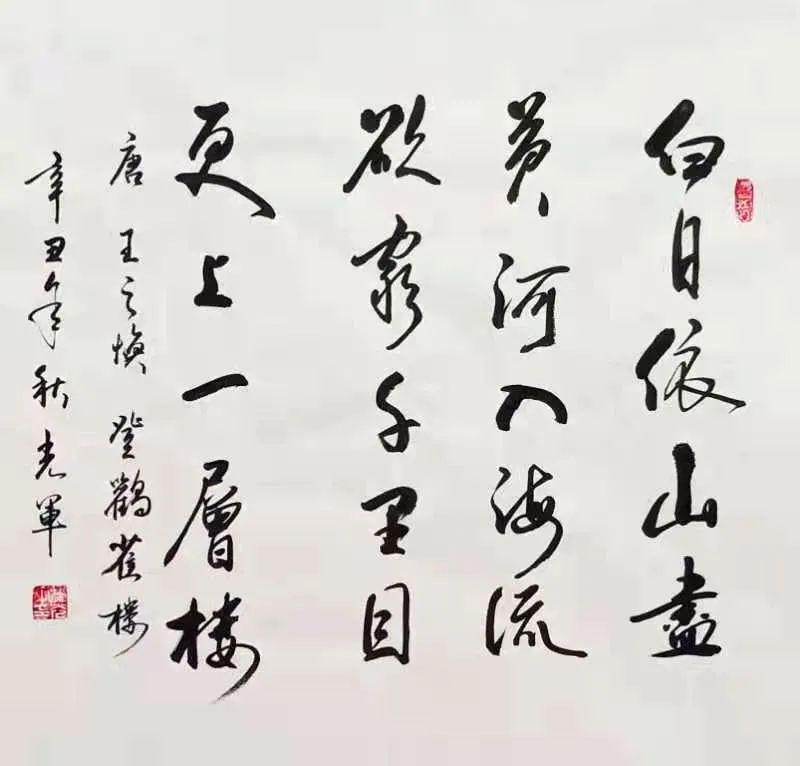 白日依山盡
黄河入海流
欲窮千里目
更上一層楼
唐 王之煥 登鸛雀楼
辛丑年秋 光軍